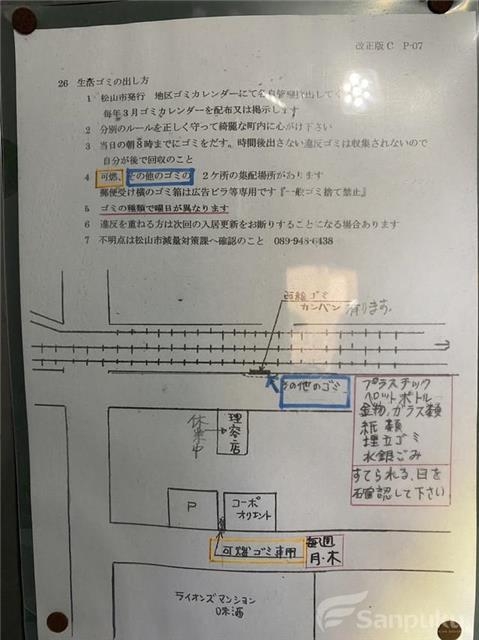 改正版C P-07
26 生活ゴミの出し方
1 松山市発行 地区ゴミカレンダーにて各自管理排出してく
毎年3月ゴミカレンダーを配布又は掲示します
2 分別のルールを正しく守って綺麗な町内に心がけ下さい
3 当日の朝8時までにゴミをだす。時間後出さない違反ゴミは収集されないので
自分が後で回収のこと
4 可燃、その他のゴミの 2ケ所の集配場所があります
郵便受け横のゴミ箱は広告ビラ等専用です『一般ゴミ捨て禁止』
5 ゴミの種類で曜日が異なります
6 違反を重ねる方は次回の入居更新をお断りすることになる場合あります
7 不明点は松山市減量対策課へ確認のこと 089-948-6438
ゴミ
カンバン 有ります。
その他のゴミ
プラスチック
ペットボトル
金物,ガラス類
紙類
埋立ゴミ
水銀ごみ
すてられる、日を
確認して下さい
休業中
理容店
P
コーポ
オリエント
可燃ゴミ専用
毎週
月・木
ライオンズマンション
味酒
Sanpuku